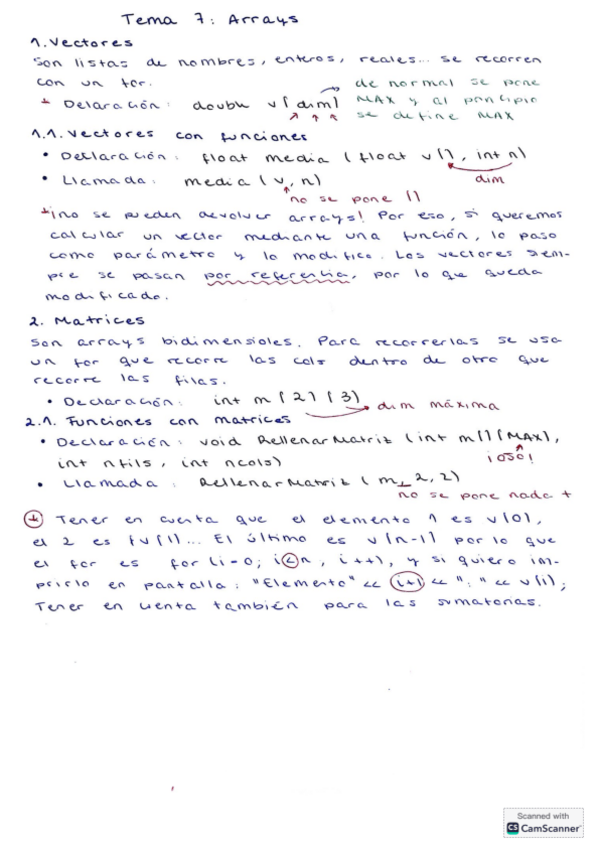 Tema 7: Arrays
1. Vectores
Son listas de nombres, enteros, reales... se recorren
con un for.
* Delaración: double v[dim]
de normal se pone
MAX y al principio
se define MAX
1.1. Vectores con funciones
• Declaración: float media (float v[], int n)
dim
• Llamada: media (v, n)
no se pone []
* ¡no se pueden devolver arrays! Por eso, si queremos
calcular un vector mediante una función, lo paso
como parámetro y lo modifico. Los vectores siem-
pre se pasan por referencia, por lo que queda
modificado.
2. Matrices
Son arrays bidimensioles. Para recorrerlas se usa
un for que recorre las cols dentro de otro que
recorre las filas.
• Declaración: int m[2][3]
dim máxima
2.1. Funciones con matrices
• Declaración: void RellenarMatriz (int m[][MAX],
int nfils, int ncols)
¡OJO!
• Llamada: RellenarMatriz (m, 2, 2)
no se pone nada +
* Tener en cuenta que el elemento 1 es v[0],
el 2 es v[1]... El último es v[n-1] por lo que
el for es for(i=0; i<n, i++), y si quiero im-
prirlo en pantalla: "Elemento" << i+1 << ":" << v[i];
Tener en cuenta también para las sumatorias.
Scanned with
CS CamScanner